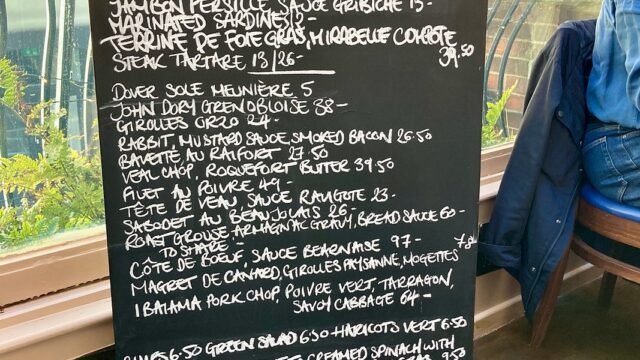 JAMBON PERSILLÉ SAUCE GRIBICHE 15-
MARINATED SARDINES 12-
TERRINE DE FOIE GRAS, MIRABELLE COMPOTE 39.50
STEAK TARTARE 13/26-
DOVER SOLE MEUNIÈRE 5
JOHN DORY GRENOBLOISE 38-
GIROLLES ORZO 24-
RABBIT, MUSTARD SAUCE, SMOKED BACON 26.50
BAVETTE AU RAIFORT 27.50
VEAL CHOP, ROQUEFORT BUTTER 39.50
FILET AU POIVRE 49-
TÊTE DE VEAU, SAUCE RAVIGOTE 23-
SABODET AU BEAUJOLAIS 26-
ROAST GROUSE, ARMAGNAC GRAVY, BREAD SAUCE 60-
TO SHARE -
CÔTE DE BOEUF, SAUCE BEARNAISE 97-
MAGRET DE CANARD, GIROLLES PAYSANNE, MOGETTES
IBAIAMA PORK CHOP, POIVRE VERT, TARRAGON,
SAVOY CABBAGE 64-
6.50 GREEN SALAD 6.50 HARICOTS VERT 6.50
CREAMED SPINACH WITH
9.50